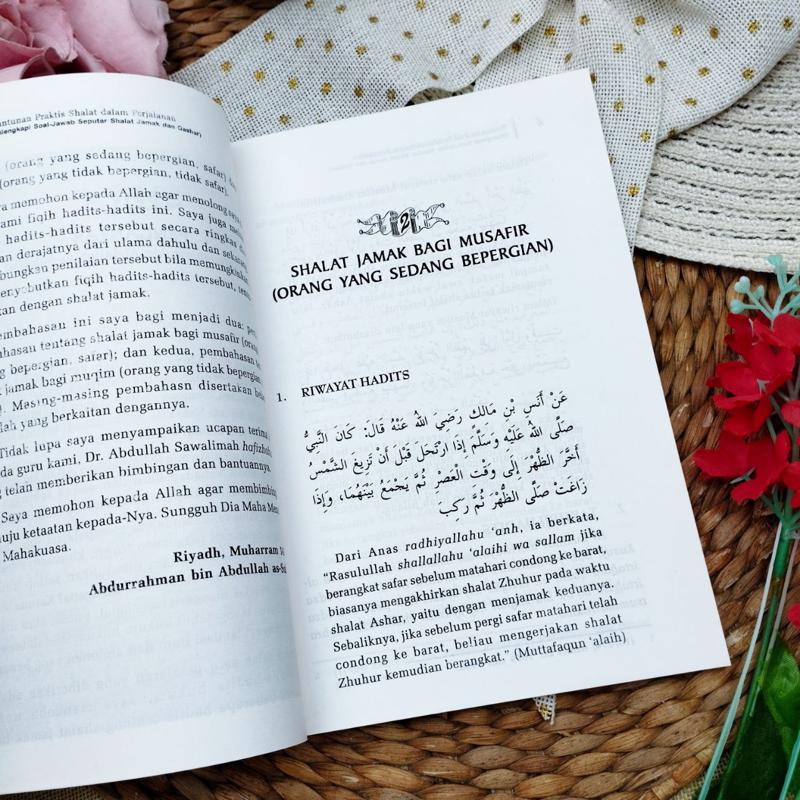 ntunan Praktis Shalat dalam Perjalanan
lengkapi Soal-Jawab Seputar Shalat Jamak dan Qashar)
(orang yang sedang bepergian, safar)
(orang yang tidak bepergian, tidak safar).
ya memohon kepada Allah agar menolong
ami fiqih hadits-hadits ini. Saya juga
hadits-hadits tersebut secara ringkas
an derajatnya dari ulama dahulu dan
bungkan penilaian tersebut bila memungkinkan
enyebutkan fiqih hadits-hadits tersebut,
kan dengan shalat jamak.
embahasan ini saya bagi menjadi dua:
hasan tentang shalat jamak bagi musafir (orang
g bepergian, safar); dan kedua, pembahasan
t jamak bagi muqim (orang yang tidak bepergian,
). Masing-masing pembahasn disertakan
lah yang berkaitan dengannya.
Tidak lupa saya menyampaikan ucapan terima
da guru kami, Dr. Abdullah Sawalimah hafizha
g telah memberikan bimbingan dan bantuannya.
Saya memohon kepada Allah agar membimbing
uju ketaatan kepada-Nya. Sungguh Dia Maha
Mahakuasa.
Riyadh, Muharram
Abdurrahman bin Abdullah
2
SHALAT JAMAK BAGI MUSAFIR
(ORANG YANG SEDANG BEPERGIAN)
1. RIWAYAT HADITS
عَنْ أَنَسِ بْنِ مَالِكٍ رَضِيَ اللهُ عَنْهُ قَالَ: كَانَ النَّبِيُّ
صَلَّى اللهُ عَلَيْهِ وَسَلَّمَ إِذَا ارْتَحَلَ قَبْلَ أَنْ تَزِيغَ الشَّمْسُ
أَخَّرَ الظُّهْرَ إِلَى وَقْتِ الْعَصْرِ ثُمَّ يَجْمَعُ بَيْنَهُمَا، وَإِذَا
زَاغَتْ صَلَّى الظُّهْرَ ثُمَّ رَكِبَ
Dari Anas radhiyallahu 'anh, ia berkata,
"Rasulullah shallallahu 'alaihi wa sallam jika
berangkat safar sebelum matahari condong ke barat,
biasanya mengakhirkan shalat Zhuhur pada waktu
shalat Ashar, yaitu dengan menjamak keduanya.
Sebaliknya, jika sebelum pergi safar matahari telah
condong ke barat, beliau mengerjakan shalat
Zhuhur kemudian berangkat." (Muttafaqun 'alaih)